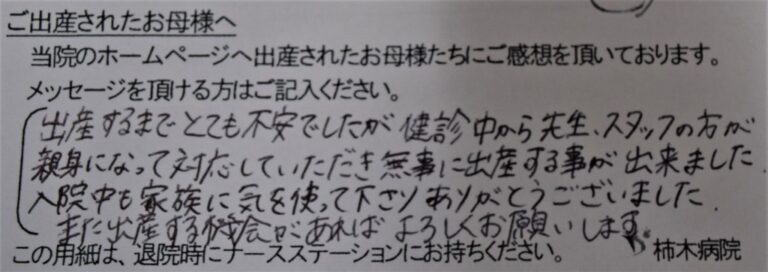 ご出産されたお母様へ
当院のホームページへ出産されたお母様たちにご感想を頂いております。
メッセージを頂ける方はご記入ください。
出産するまでとても不安でしたが健診中から先生、スタッフの方が
親身になって対応していただき無事に出産する事が出来ました
入院中も家族に気を使って下さりありがとうございました
また出産する機会があればよろしくお願いします。
この用紙は、退院時にナースステーションにお持ちください。 柿木病院